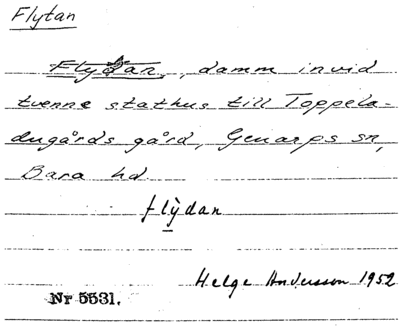 Flytan
Flydan, damm invid
tvenne stathus till Toppela-
dugårds gård, Genarps sn,
Bara hd.
flỳdan
Helge Andersson 1952
Nr 5531.